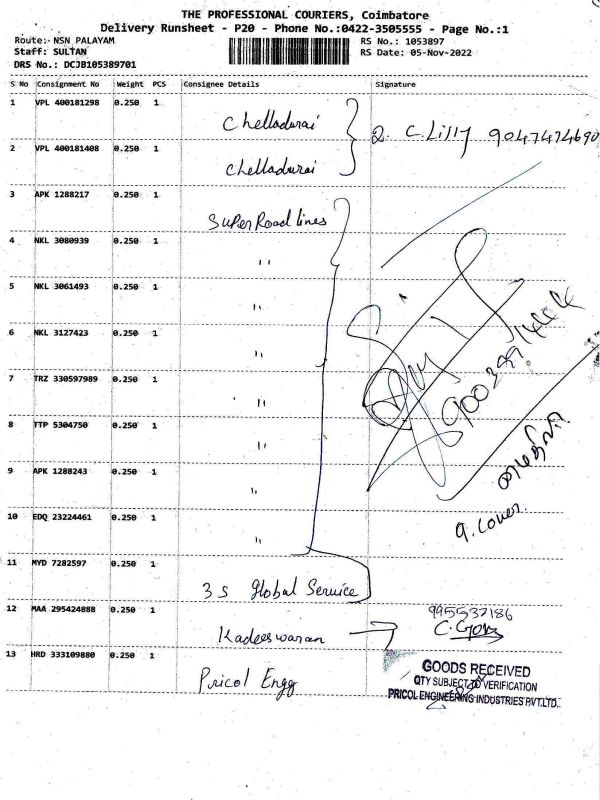 THE PROFESSIONAL COURIERS, Coimbatore
Delivery Runsheet - P20 - Phone No.:0422-3505555 - Page No.:1
Route: NSN PALAYAM RS No.: 1053897
Staff: SULTAN RS Date: 05-Nov-2022
DRS No.: DCJB105389701
S No Consignment No Weight PCS Consignee Details Signature
1 VPL 400181298 0.250 1 Chelladurai
2. C.Lilly 9047474690
2 VPL 400181408 0.250 1 Chelladurai
3 APK 1288217 0.250 1 Super Road lines
4 NKL 3080939 0.250 1 "
5 NKL 3061493 0.250 1 "
6 NKL 3127423 0.250 1 "
7 TRZ 330597989 0.250 1 "
8 TTP 5304750 0.250 1 "
9 APK 1288243 0.250 1 "
10 EDQ 23224461 0.250 1 "
9. cover
11 MYD 7282597 0.250 1 3 S Global Service
12 MAA 295424888 0.250 1 Kadeeswaran
13 HRD 333109880 0.250 1 Pricol Engg
GOODS RECEIVED
QTY SUBJECT TO VERIFICATION
PRICOL ENGINEERING INDUSTRIES PVT.LTD.